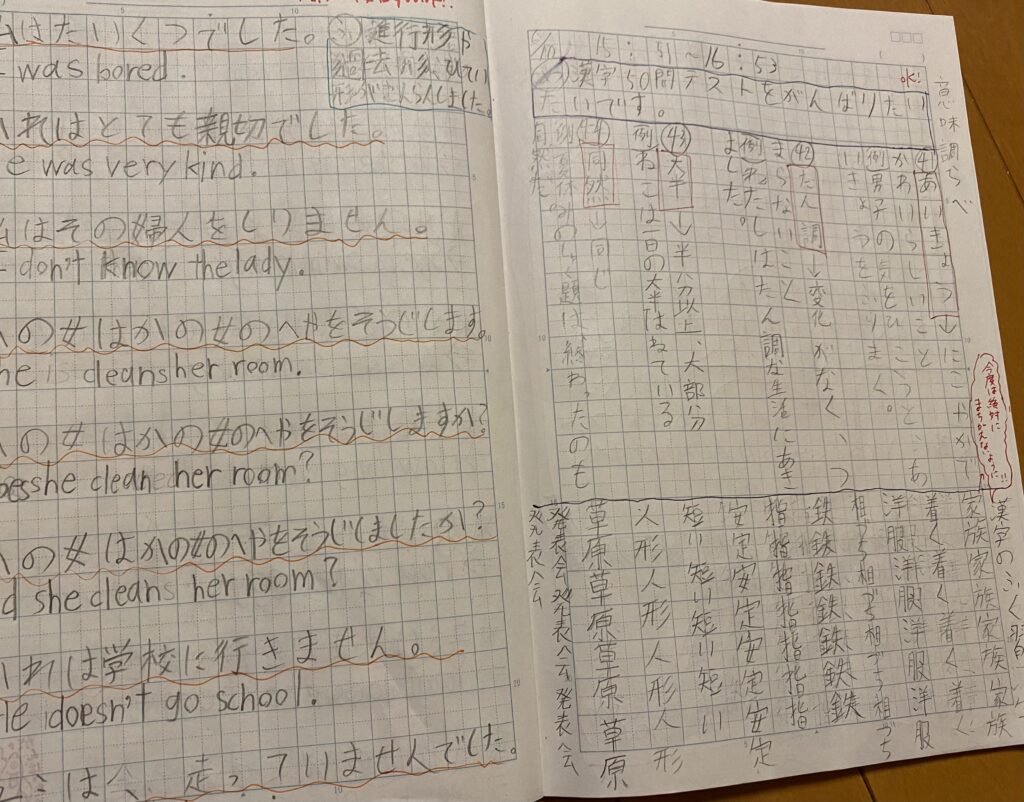 はたいくつでした。
was bored.
進行形や
過去形、
れはとても親切でした。
e was very kind.
はその婦人をしりません。
don't know the lady.
の女はかの女のへやをそうじします。
he cleans her room.
の女はかの女のへやをそうじしますか?
oes she clean her room?
の女はかの女のへやをそうじしましたか?
d she cleans her room?
れは学校に行きません。
He doesn't go school.
は今、走っていませんでした。
15:31~16:53
OK!
漢字50問テストをがんばりたい
たいです。
意味調べ
(41)あいきょう→にこやかで
かわいらしいこと
例男子の気をひこうと、あ
いきょうをふりまく。
(42)たん調→変化がなく、つ
まらないこと
例わたしはたん調な生活にあき
ました。
(43)大半→半分以上、大部分
例ねこは一日の大半はねている
(44)同然→同じ
例夏休みのしゅく題は、終わったのも
同然だ
今度は絶対に
まちがえないように!!
漢字のふく習
家族家族家族家族
着く着く着く着く
洋服洋服洋服洋服
相づち相づち相づち
鉄鉄鉄鉄鉄鉄
指指指指指指
安定安定安定安定
短い短い短い短い
人形人形人形人形
草原草原草原草原
発表会発表会発表会発表会